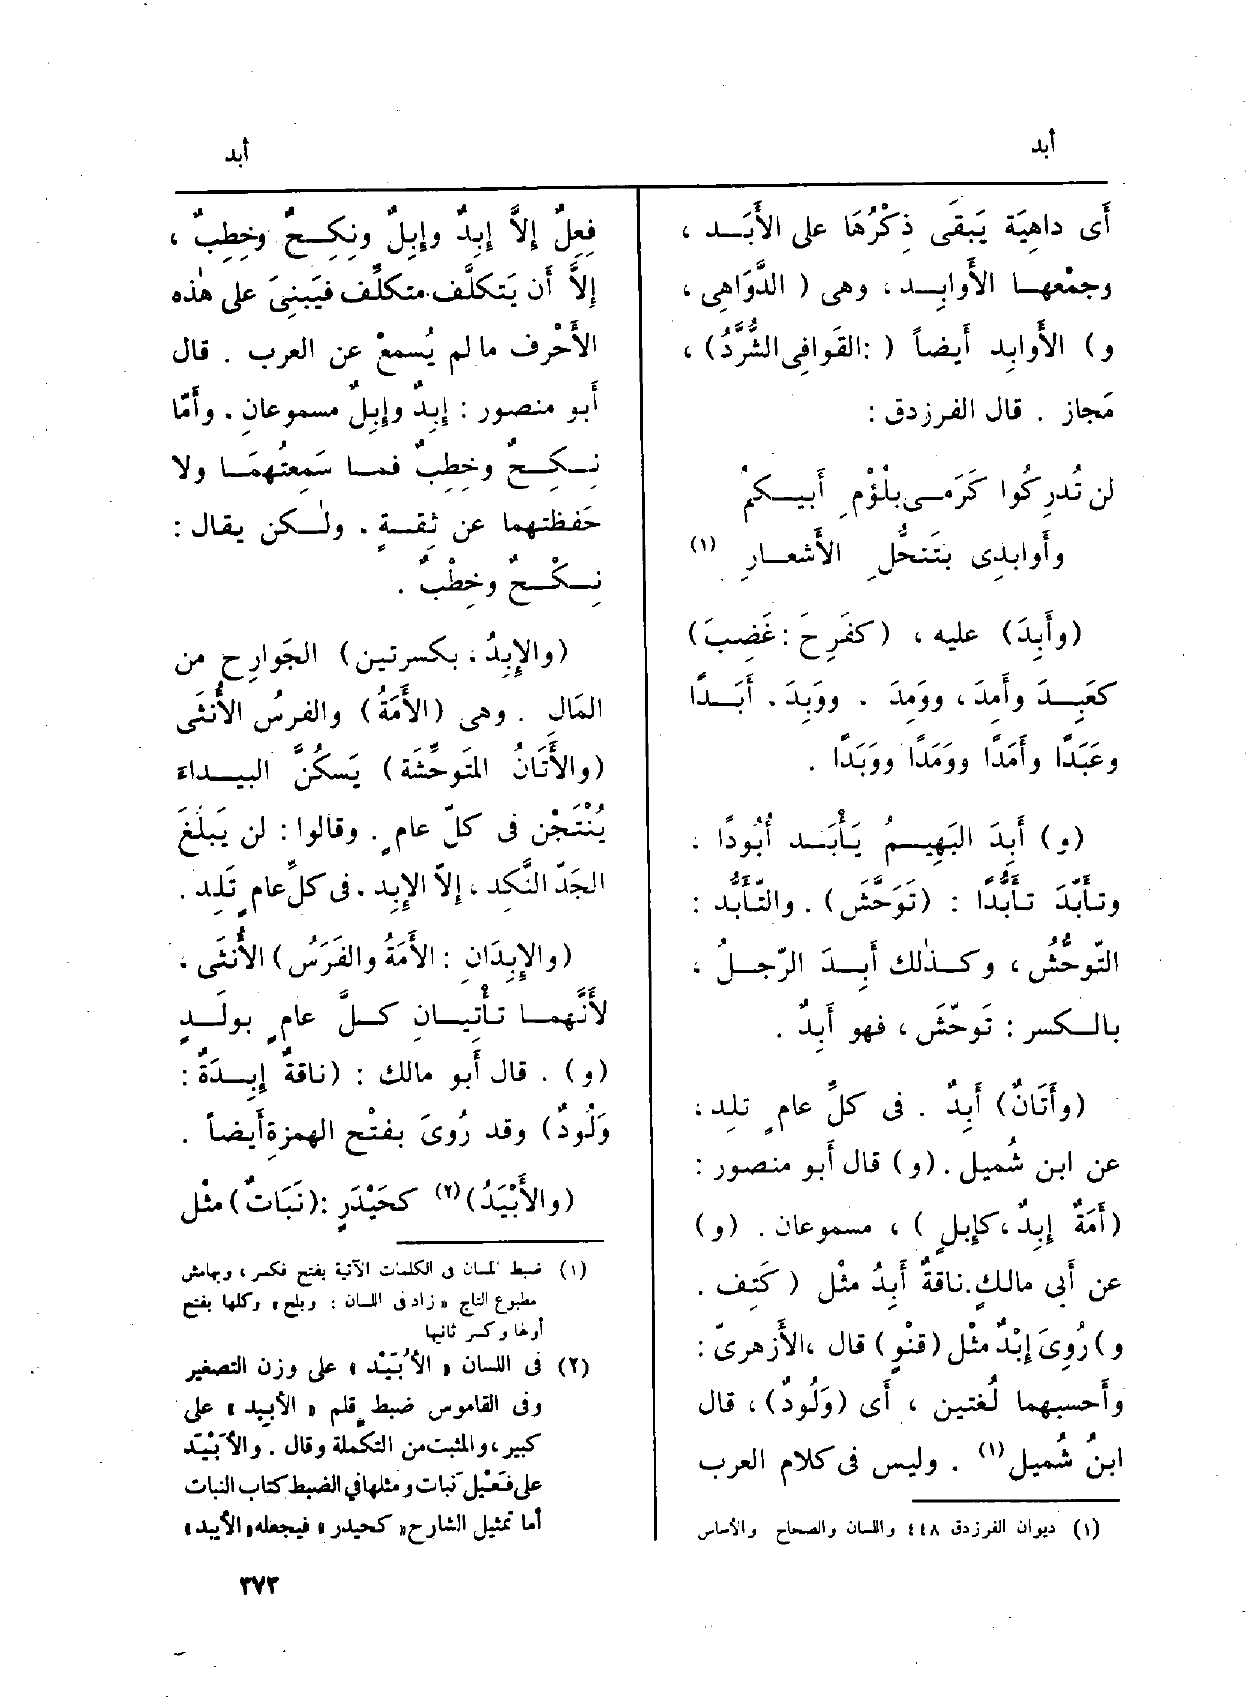 أبد
أبد
أى داهِيَة يَبقَى ذِكْرُهَا على الأَبَـد ،
وجمْعهـا الأَوابِـد ، وهى ( الدَّوَاهِى ،
و) الأَوابِد أَيضاً ( :القَوافِى الشُّرَّدُ) ،
مَجاز . قال الفرزدق :
لن تُدرِكُوا كَرَمـى بلُؤْمِ أَبيـكمْ
وأَوابِدِى بتَنحُّلِ الأَشعـارِ (١)
(وأَبِدَ) عليه ، (كفَرِحَ : غَضِبَ)
كعَبِـدَ وأَمِدَ ، ووَمِدَ . ووَبِدَ . أَبَـدًا
وعَبَدًا وأَمَدًا ووَمَدًا ووَبَدًا .
(و) أَبِدَ البَهِيـمُ يَأْبَـد أُبُودًا .
وتـأَبَّدَ تأَبُّدًا : (تَوَحَّشَ) . والتّأَبُّد :
التّوحُّش ، وكـذٰلك أَبِـدَ الرّجـلُ ،
بالـكسر : تَوحّشَ ، فهو أَبِدٌ .
(وأَتَانٌ) أَبِدٌ . فى كلِّ عامٍ تلِد ،
عن ابن شُميل . (و) قال أَبو منصور :
(أَمَةٌ إِبِدٌ ،كإِبلٍ ) ، مسموعان . (و)
عن أَبى مالكٍ . ناقةٌ أَبِدٌ مثْل ( كَتِف .
و) رُوِىَ إِبْدٌ مثْل (قنْوٍ) قال ،الأَزهرىّ :
وأَحسبهما لُغتين ، أَى (وَلُودٌ) ، قال
ابنُ شُميل (١) . وليس فى كلام العرب
(١) ديوان الفرزدق ٤٤٨ واللسان والصحاح والأساس
فِعِلٌ إِلاَّ إِبِدٌ وإِبِلٌ ونِكِـحٌ وخِطِبٌ ،
إِلاَّ أَن يَتكلَّف متكلِّف فيَبنِىَ على هٰذه
الأَحْرف مالم يُسمعْ عن العرب . قال
أَبو منصور : إِبِدٌ وإِبِلٌ مسموعانِ . وأَمّا
نِـكِـحٌ وخِطِبٌ فمـا سَمِعتُهمَـا ولا
حَفظتهما عن ثِقـةٍ . ولٰـكن يقال :
نِـكْـحٌ وخِطْبٌ .
(والإِبِدُ ، بكسرتين) الجَوارِح من
المَال . وهى (الأَمَةُ) والفرسُ الأُنثَى
(والأَتَانُ المتَوحِّشَة) يَسكُنَّ البيـداءَ
يُنْتَجْن فى كلّ عامٍ . وقالوا : لن يَبلُغَ
الجَدّ النَّكِد ، إِلاّ الإِبِد . فى كلِّ عامٍ تَلِد .
(والإِبِدَانِ : الأَمَةُ والفَرَسُ) الأُنثَى ،
لأَنَّهمـا تأْتِيـانِ كـلَّ عامٍ بولَـدٍ
(و) . قال أَبو مالك : (ناقةٌ إِبِـدَةٌ :
وَلُودٌ) وقد رُوىَ بفتْح الهمزةِ أَيضاً .
(والأَبْيَدُ)(٢) كحَيْدَرٍ :(نَبَاتٌ) مثْل
(١) ضبط اللسان فى الكلمات الآتية بفتح فكسر ، وبهامش
مطبوع التاج « زاد فى اللسان : وبلح » وكلها بفتح
أولها وكسر ثانيها
(٢) فى اللسان « الأُبَيْد » على وزن التصغير
وفى القاموس ضبط قلم « الأبيد » على
كبير ، والمثبت من التكملة وقال . والأَبْيَد
على فَعْيَل نبات ومثلها فى الضبط كتاب النبات
أما تمثيل الشارح « كحيدر » فيجعله « الأيبد »
٣٧٣